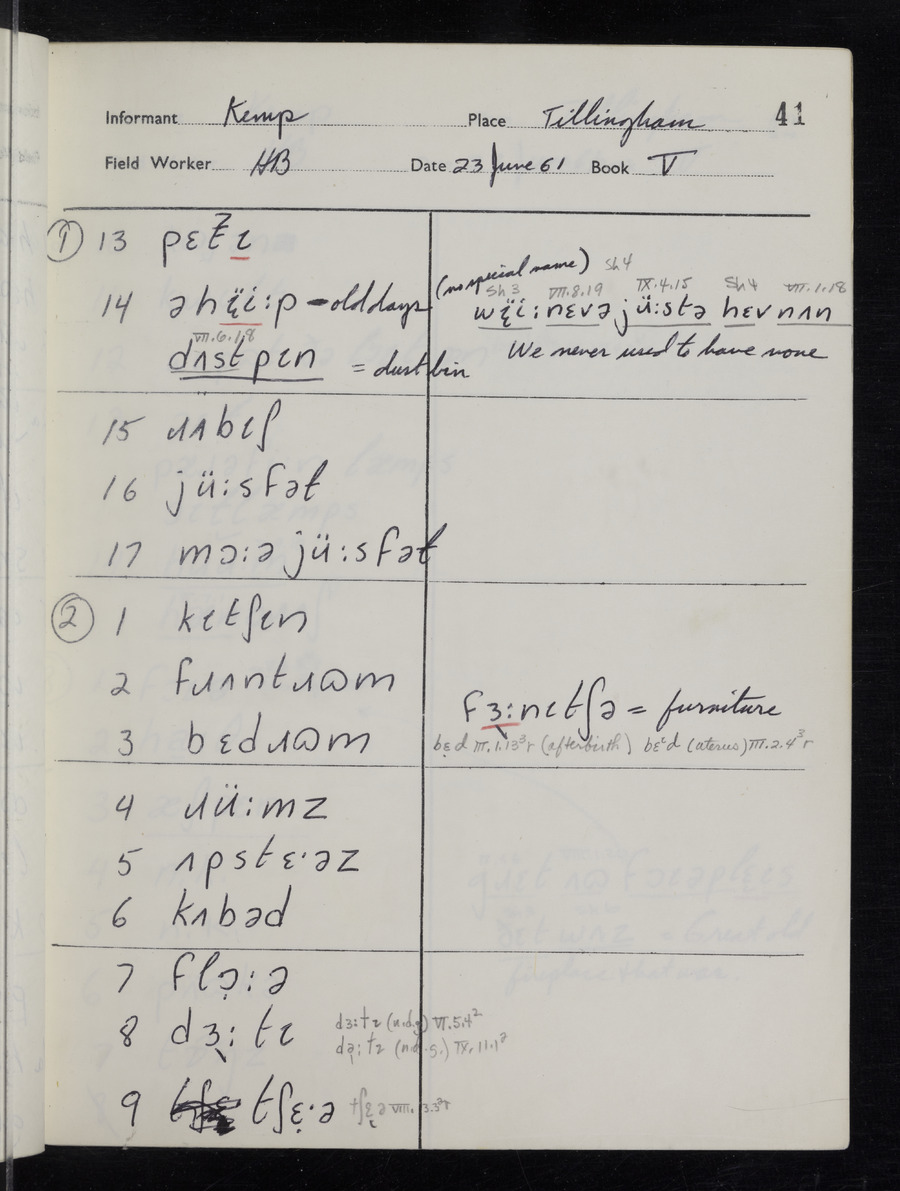 Informant Kemp Place Tillingham 41
Field Worker HB Date 23 June 61 Book V
① 13 pɛtɪ
(no special name) Sh4
Sh3 VII.8.19 IX.4.15 Sh4 VII.1.18
14 əhɛ̈i:p - old days wɛ̈i:nɛvə jü:stə hɛv nʌn
VII.6.18
dʌstpɪn = dust bin We never used to have none
15 ɹʌbɪʃ
16 jü:sfət
17 mɔ:ə jü:sfət
② 1 kɪtʃɪn
2 fɹʌntɹɷm
fɜ:nɪtʃə = furniture
3 bɛdɹɷm bɛ̣d III.1.13³r (afterbirth) bɛᶦd (uterus) III.2.4³r
4 ɹü:mz
5 ʌpstɛ·əz
6 kʌbəd
7 flɔ̣:ə
dɜ:tɪ (n.d.g) VI.5.4²
8 dɜ:tɪ
də̣:tɪ (n.d.g.) IX.11.1²
9 tʃɛ̣·ə tʃɛ̣ə VIII.3.3³r